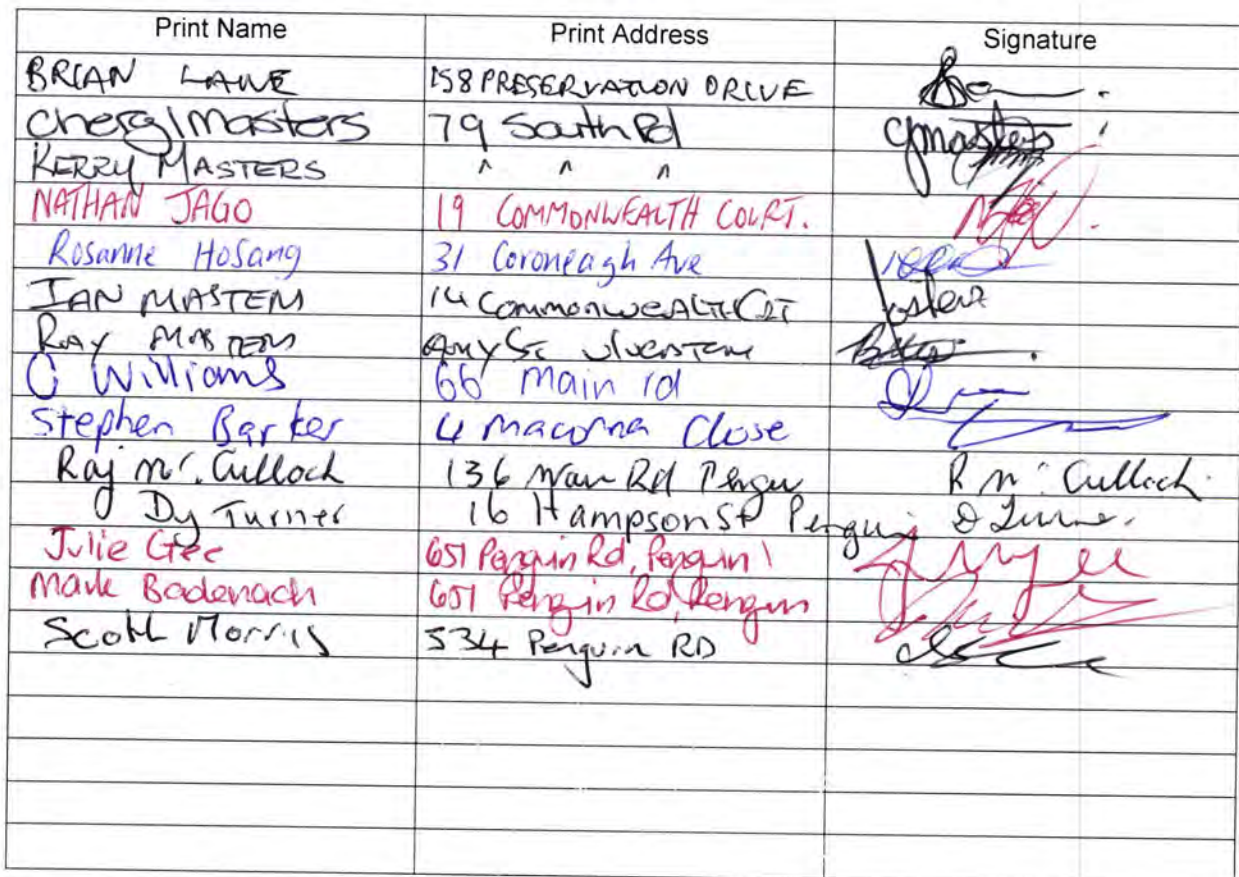 Print Name Print Address Signature
BRIAN LANE 158 PRESERVATION DRIVE
Cheryl Masters 79 South Rd CJMasters
KERRY MASTERS ^ ^ ^
NATHAN JAGO 19 COMMONWEALTH COURT.
Rosanne Hosang 31 Coroneagh Ave
IAN MASTERS 14 COMMONWEALTH CRT
RAY MASTERS AMY ST ULVERSTONE
Williams 66 Main rd
Stephen Barker 4 Macorna Close
Raj Mc. Culloch 136 Main Rd Penguin R Mc. Culloch.
Dy Turner 16 Hampson St Penguin D Turner.
Julie Gee 651 Penguin Rd, Penguin
Mark Badenach 651 Penguin Rd, Penguin
Scott Morris 534 Penguin RD